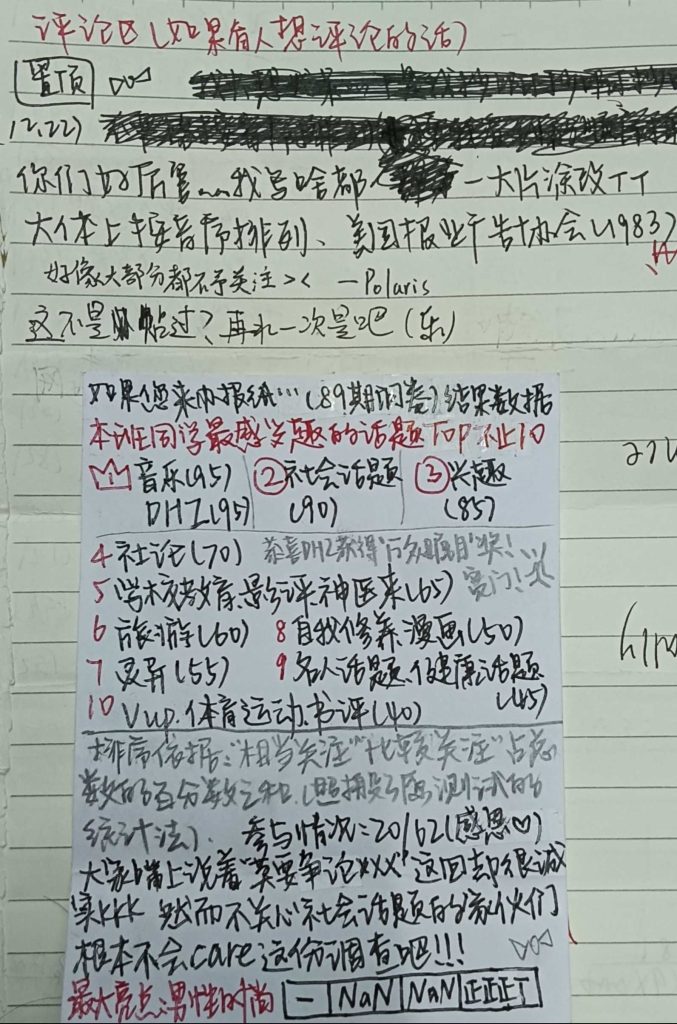 评论区(如果有人想评论的话)
置顶
12.22)
你们好厉害 我写啥都 一大片涂改TT
大体上按音序排列、美国报业广告协会(1983)
好像大部分都不予关注>< —Polaris
这不是 贴过?再来一次是吧(乐)
如果您来办报纸…(89期问卷)结果数据
本班同学最感兴趣的话题TOP不止10
1 音乐(95) ②社会话题 ③兴趣
DHZ(95) (90) (85)
4 社论(70) 恭喜DHZ获得"万众瞩目"奖!
5 学校教育、影评、神医来(65) 豪门!
6 旅游(60) 8 自我修养、漫画(50)
7 灵异(55) 9 名人话题、健康话题
(45)
10 Vup、体育运动、书评(40)
排序依据:"相当关注""比较关注"占总
数的百分数之和(照搬 测试的
统计法). 参与情况:20/62(感恩♡)
大家嘴上说着"莫要争论XXX"这回却很诚
实kkk 然而不关心社会话题的家伙们
根本不会care这份调查吧!!!
最大亮点:男性时尚 一 NaN NaN 正正正丅